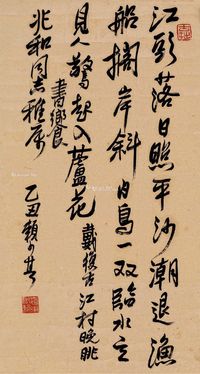 江頭落日照平沙潮退漁
船擱岸斜白鳥一双臨水立
見人驚起入蘆花 戴復古江村晚眺
書鄉食
兆和同志雅屬
乙丑賴少其